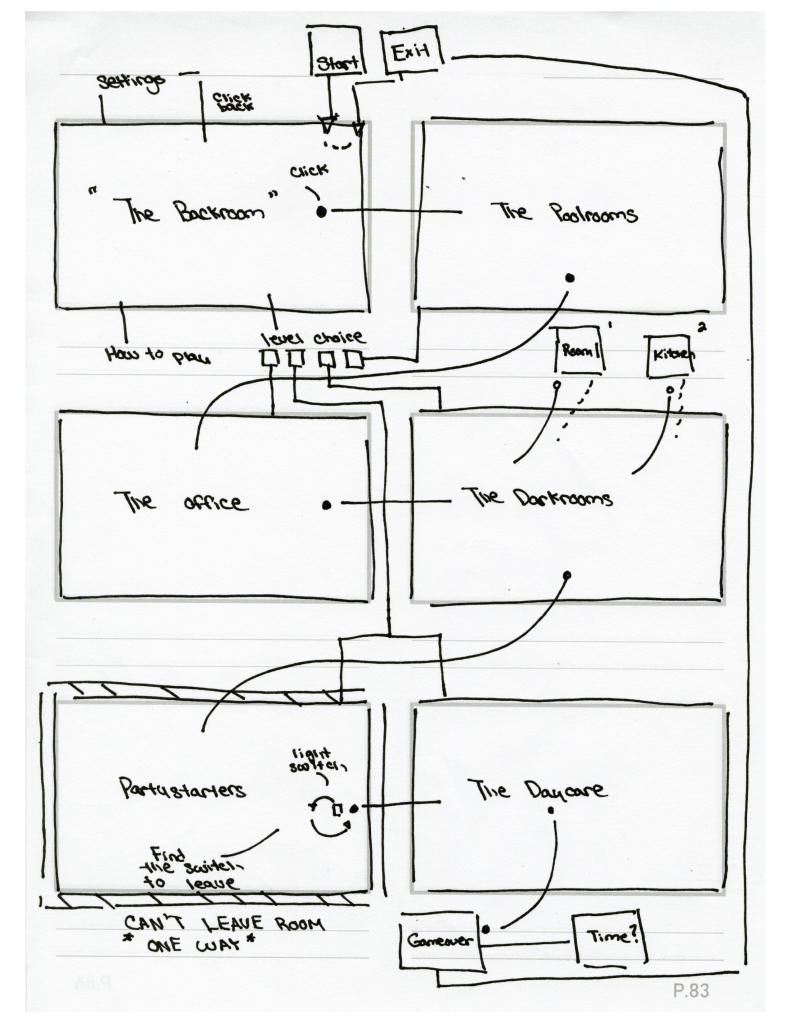 Start
Exit
Settings
Click
back
"The Backroom"
Click
The Poolrooms
How to play
level choice
Room 1
Kitchen 2
The office
The Darkrooms
Partystarters
light
switch
Find
the switch
to leave
The Daycare
CAN'T LEAVE ROOM
*ONE WAY*
Gameover
Time?
P.83